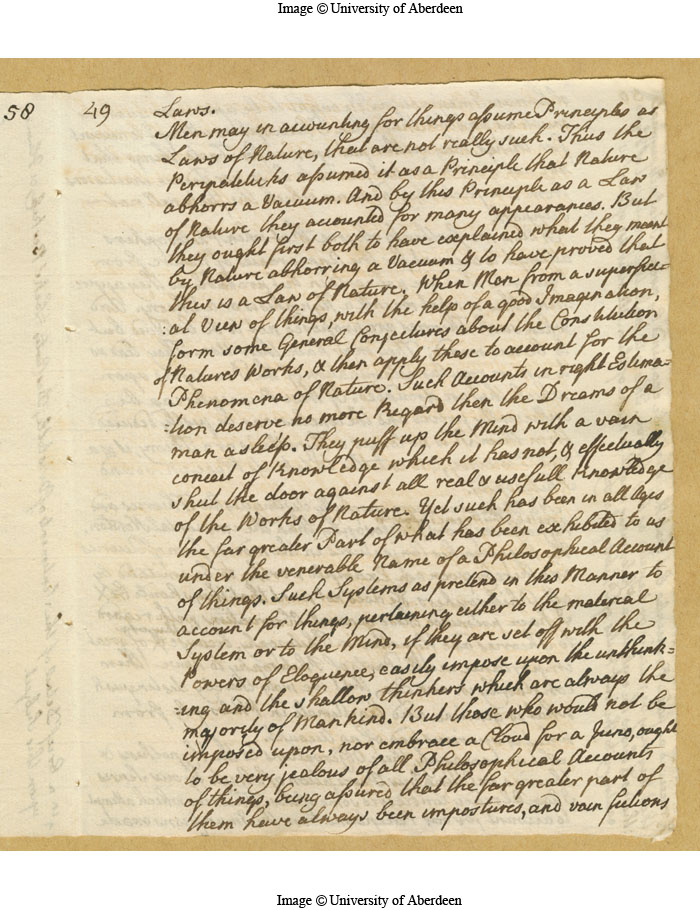 Image © University of Aberdeen
58 49 Laws.
Men may in accounting for things assume Principles as
Laws of Nature, that are not really such. Thus the
Peripateticks assumed it as a Principle that Nature
abhorrs a Vacuum. And by this Principle as a Law
of Nature they accounted for many appearances. But
they ought first both to have explained what they meant
by Nature abhorring a Vacuum & to have proved that
this is a Law of Nature. When Men from a superfici=
:al View of things, with the help of a good Imagination,
form some General Conjectures about the Constitution
of Natures Works, & then apply these to account for the
Phenomena of Nature. Such Accounts in right Estima=
=tion deserve no more Regard then the Dreams of a
man asleep. They puff up the Mind with a vain
conceit of Knowledge which it has not, & effectually
shut the door against all real & usefull Knowledge
of the Works of Nature. Yet such has been in all Ages
the far greater Part of what has been exhibited to us
under the venerable Name of a Philosophical Account
of things. Such Systems as pretend in this Manner to
account for things, pertaining either to the material
System or to the Mind, if they are set off with the
Powers of Eloquence, easily impose upon the unthink=
=ing and the shallow thinkers which are always the
majority of Mankind. But those who would not be
imposed upon, nor embrace a Cloud for a Juno, ought
to be very jealous of all Philosophical Accounts
of things, being assured that the far greater part of
them have always been impostures, and vain fictions
Image © University of Aberdeen